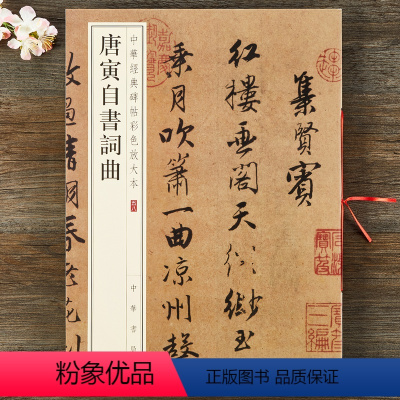 集賢賓
紅樓畫閣天縹緲玉
乘月吹簫一曲涼州聲
中華經典碑帖彩色放大本
唐寅自書詞曲
中華書局
粉象优品
官方正版 品质保障